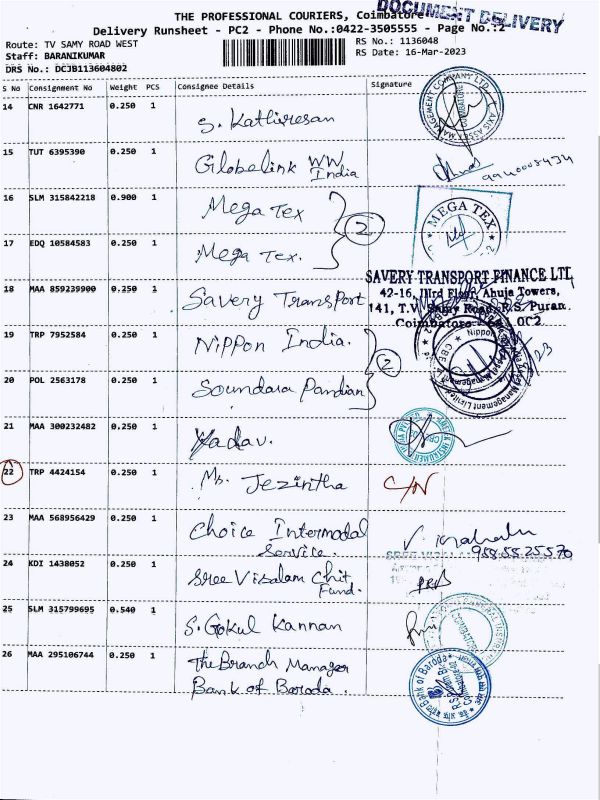 THE PROFESSIONAL COURIERS, Coimbatore
DOCUMENT DELIVERY
Delivery Runsheet - PC2 - Phone No.:0422-3505555 - Page No.:2
Route: TV SAMY ROAD WEST
RS No.: 1136048
Staff: BARANIKUMAR
RS Date: 16-Mar-2023
DRS No.: DCJB113604802
S No Consignment No Weight PCS Consignee Details Signature
14 CNR 1642771 0.250 1 S. Kathiresan
15 TUT 6395390 0.250 1 Globelink WW India
9940008434
16 SLM 315842218 0.900 1 Mega Tex
2
MEGA TEX
17 EDQ 10584583 0.250 1 Mega Tex.
18 MAA 859239900 0.250 1 Savery Transport
SAVERY TRANSPORT FINANCE LTD
42-16, IIIrd Floor, Ahuja Towers,
141, T.V. Samy Road, R.S. Puram
Coimbatore
19 TRP 7952584 0.250 1 Nippon India.
2
20 POL 2563178 0.250 1 Soundara Pandian
21 MAA 300232482 0.250 1 Yadav.
22 TRP 4424154 0.250 1 Ms. Jezintha C/N
23 MAA 568956429 0.250 1 Choice Intermodal
Service.
24 KDI 1438052 0.250 1 Sree Visalam Chit
Fund.
25 SLM 315799695 0.540 1 S. Gokul Kannan
26 MAA 295106744 0.250 1 The Branch Manager
Bank of Baroda.
Bank of Baroda